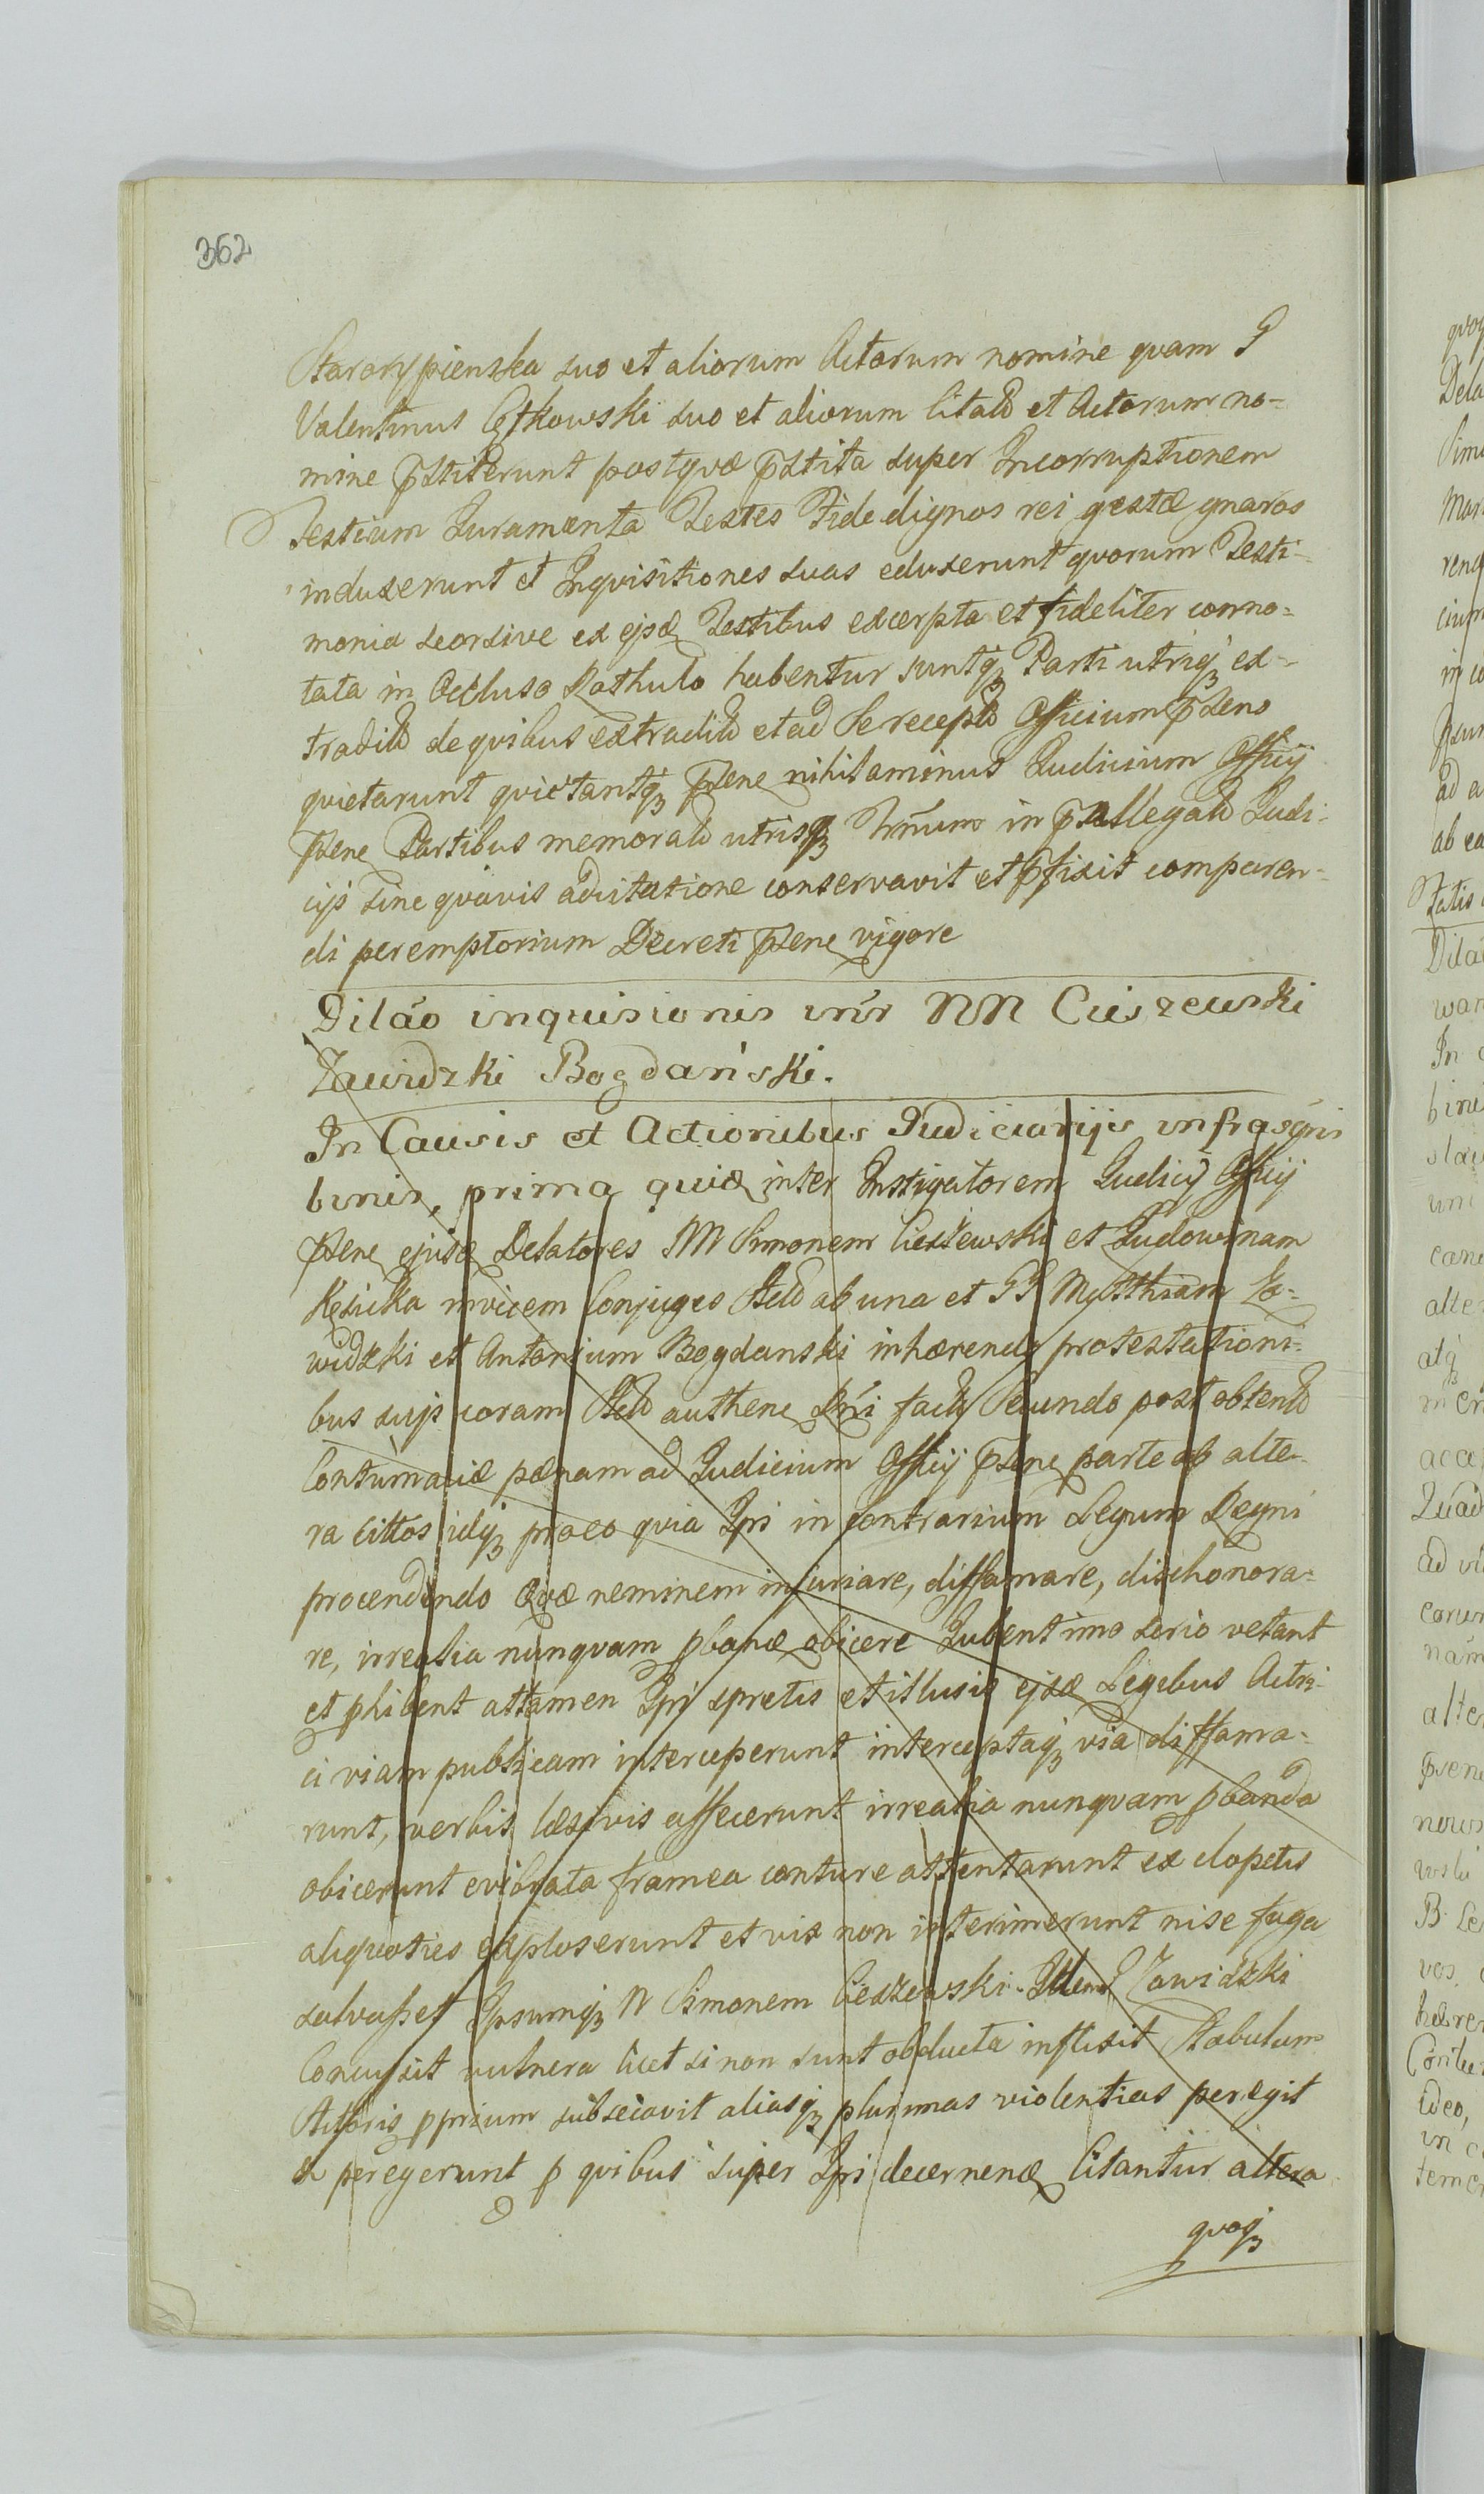 362
Stararypienska suo et aliorum Actorum nomine quam G
Valentinus Cętkowski suo et aliorum Citatd et Actorum no=
mine p̄stiterunt postqvæ p̄stita super Incorruptionem
Testium Juramenta Testes Fide dignos rei gestæ gnaros
induxerunt et Inqvisitiones suas eduxerunt qvorum Testi=
monia seorsive ex ejsd Testibus excerpta et fideliter conno=
tata in Occluso Rothulo habentur suntq Parti utriq ex=
tradita de qvibus extraditd et ad se receptd Officium p̄sens
qvietarunt qvietantq p̄sene nihilominus Judicium Officij
p̄sene Partibus memoratd utrisq Trn̄um in p̄allegatd Judi-
cijs sine qvavis aducitatione conservavit et p̄fixit comparen=
di peremptorium Decreti p̄sene vigore
Dilão inquisionis int̄r NN Cieszewski
Zawidzki Bogdański.
In Causis et Actionibus Judiciarijs infrascr̄is
binis, prima quidem inter Instigatorem Judicij Officij
p̄sene ejusd Delatores NN Simonem Cieszewski et Ludowinam
Kęsicka invicem Conjuges Actd ab una et GG Matthiam Za=
widzki et Antonium Bogdanski inhærende protestationi=
bus sup coram Actd authene Dr̄i factis Secundo post obtentd
Contumaciæ pænam ad Judicium Officij p̄sene parte ab alte-
ra Cittos idq pro eo qvia Ipsi in Contrarium Legum Regni
procendendo Qvæ neminem injuriare, diffamare, dischonora=
re, irrealia nunqvam pbanda obicere Jubent imo serio vetant
et phibent attamen Ipsi spretis et illusis ejsd Legibus Actri-
ci viam publicam interceperunt interceptaq via diffama=
runt, verbis læsivis affecerunt irrealia nunqvam pbanda
obicerunt evibrata framea conture attentarunt ex clopetis
aliqvoties exploserunt et vix non interimerunt nise fuga
salvasset Ipsumq N Simonem Cieszewski Idem G Zawidzki
Concussit vulnera licet si non sunt obducta inflixit Stabulum
Actoris pprium subsecavit aliasq plurimas violentias peregit
et peregerunt p qvibus super Ipsi decernend Citantur altera
qvoq